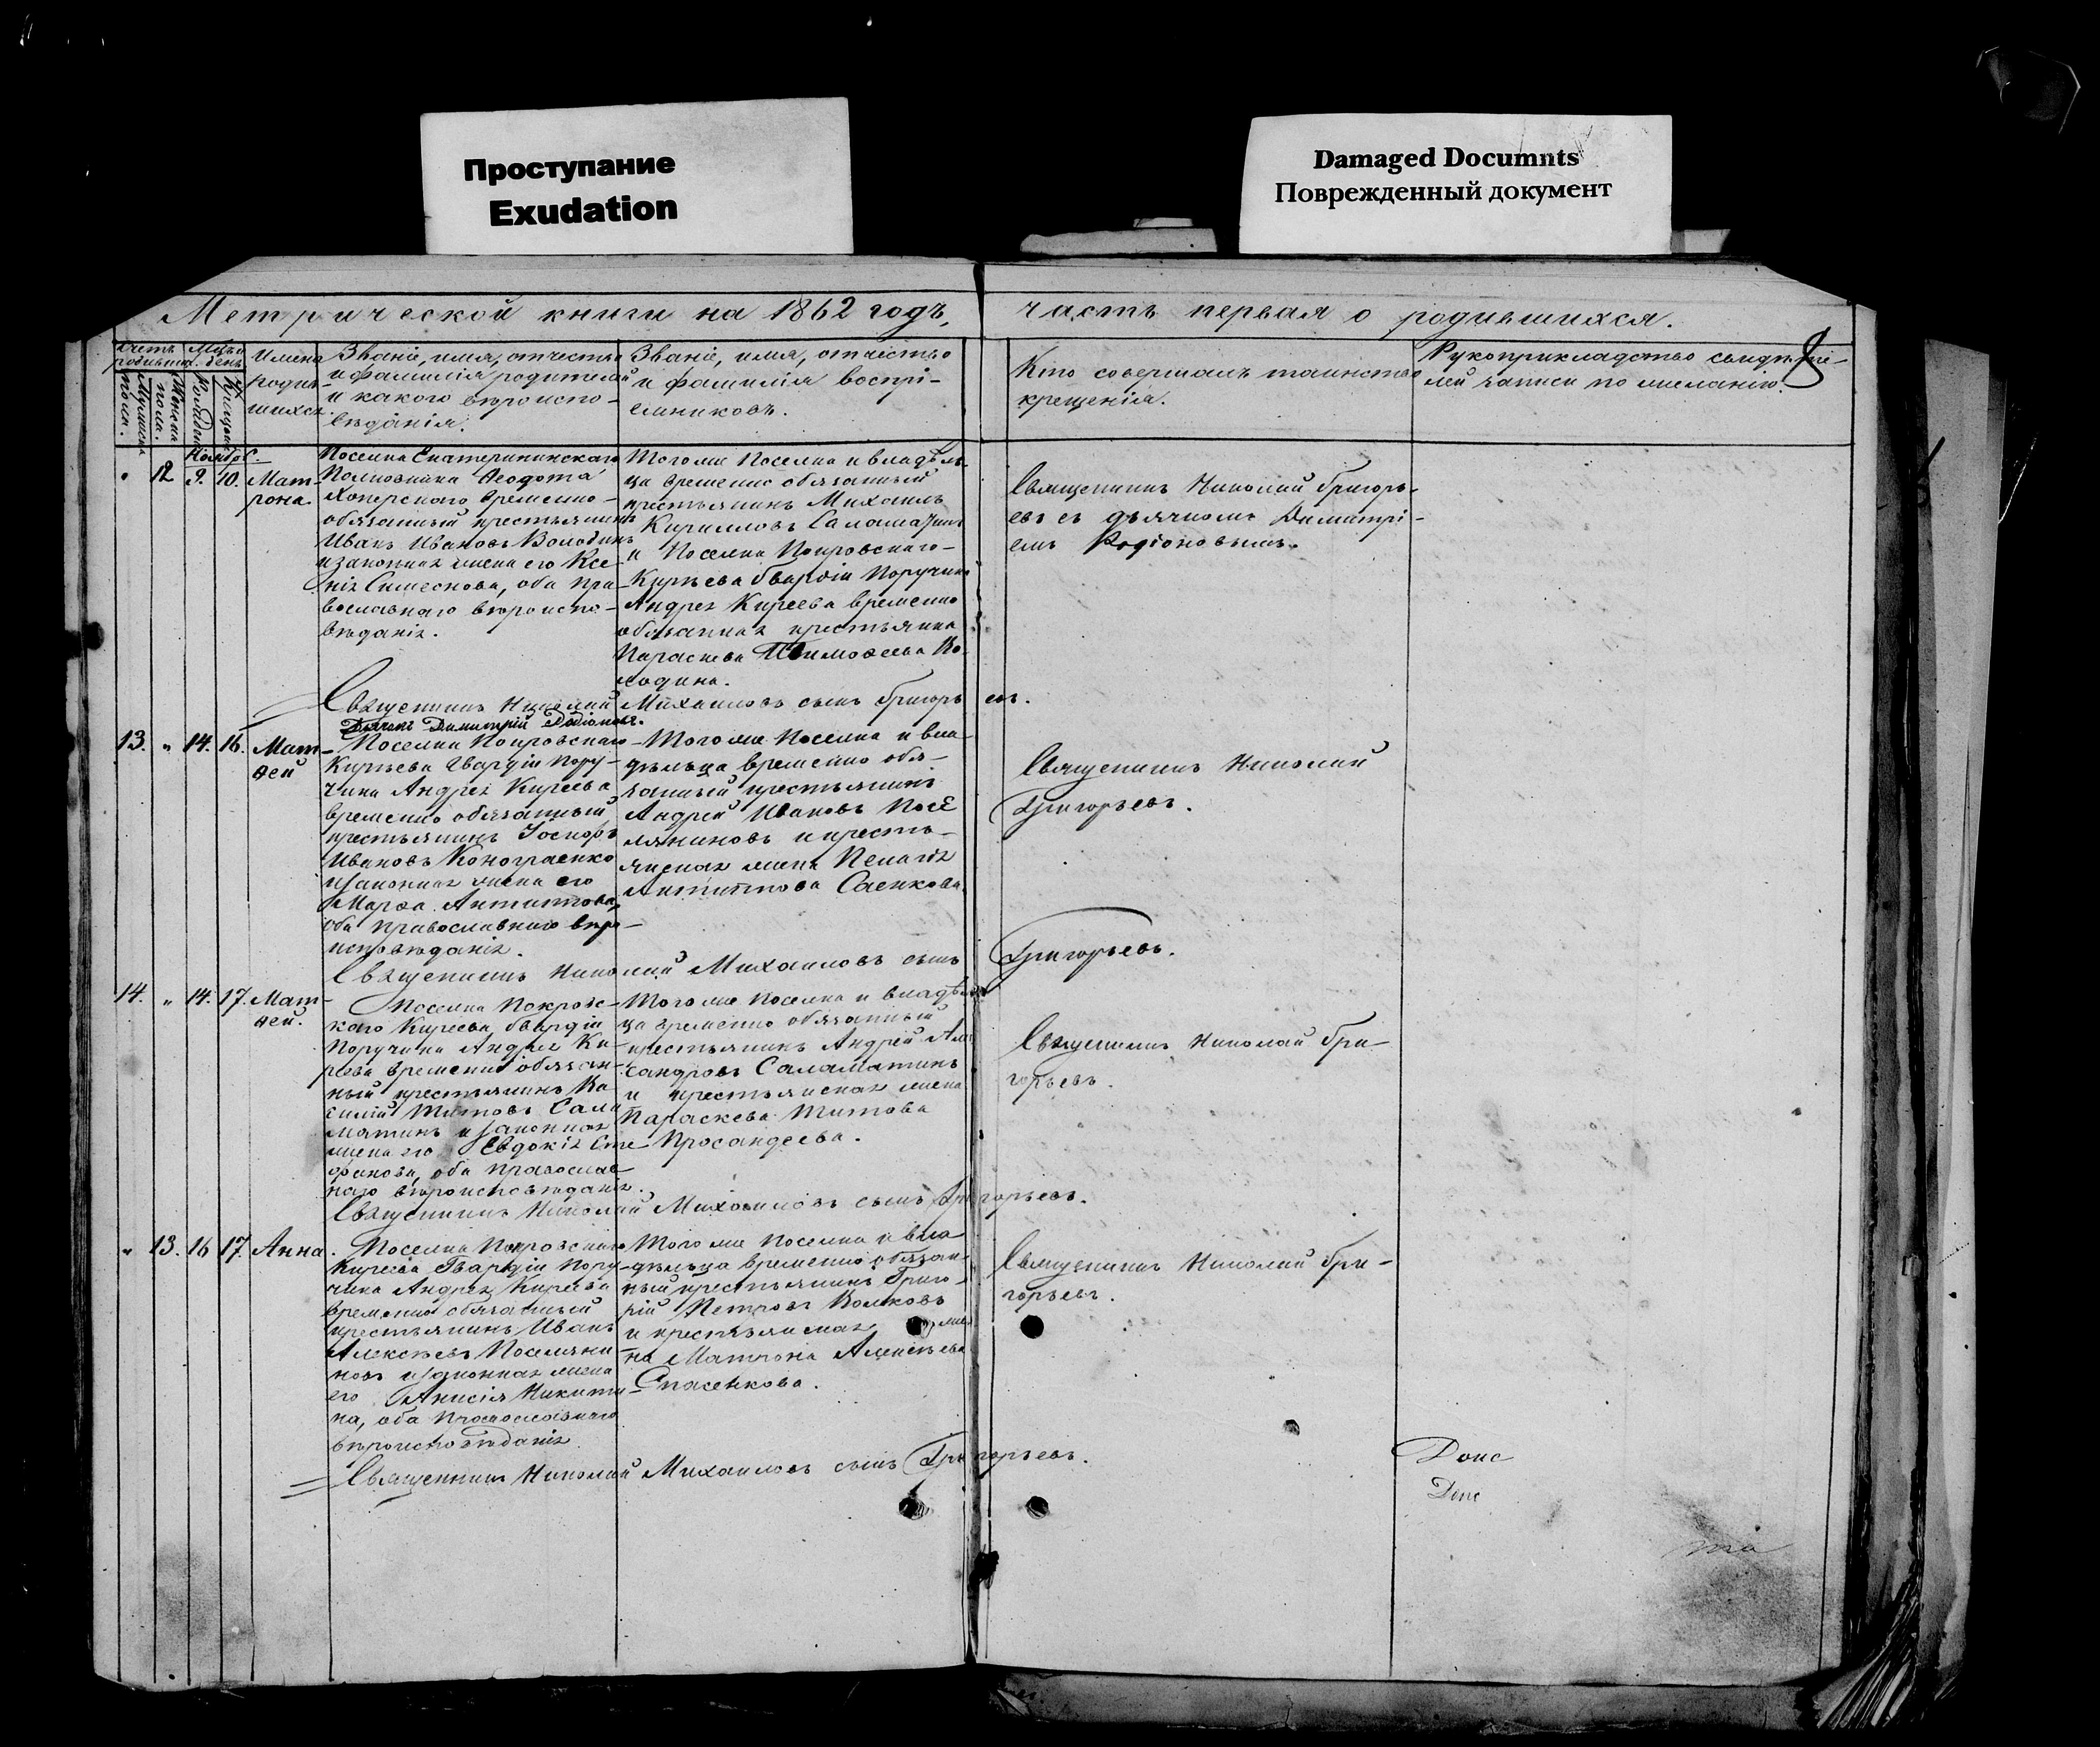 Проступание
Exudation
Damaged Documnts
Поврежденный документ
Метрической книги на 1862 годъ,
часть первая о родившихся.
8
Имена
родив-
шихся.
Званіе, имя, отчество
и фамилія родителей
и какого вѣроиспо-
вѣданія.
Званіе, имя, отчество
и фамилія воспрі-
емниковъ.
Кто совершалъ таинство
крещенія.
Рукоприкладство свидѣте-
лей записи по желанію.
Ноябрь.
12
9.
10.
Мат-
рона.
Поселка Екатерининскаго
Полковника Ѳеодота
Хоперскаго временно-
обязанный крестьянинъ
Иванъ Ивановъ Володинъ
и законная жена его Ксе-
нія Симеонова, оба пра-
вославнаго вѣроиспо-
вѣданія.
Тогоже Поселка и владѣль-
ца временно обязанный
крестьянинъ Михаилъ
Кириловъ Саламатинъ
и Поселка Покровскаго-
Кирѣева Гвардіи Поручика
Андрея Киреева временно
обязанная крестьянка
Параскева Тимоѳеева Во-
лодина.
Священникъ Николай Григорь-
евъ съ дьячкомъ Димитрі-
емъ Родіоновымъ.
Священникъ Николай Михаиловъ сынъ Григорьевъ.
Дьячекъ Димитрій Родіоновъ.
13.
"
14.
16.
Мат-
ѳей
Поселка Покровскаго
Кирѣева Гвардіи Пору-
чика Андрея Киреева
временно обязанный
крестьянинъ Іосифъ
Ивановъ
и законная жена его
Марѳа Антипова,
оба православнаго вѣро-
исповѣданія.
Тогоже Поселка и вла-
дѣльца временно обя-
занный крестьянинъ
Андрей Ивановъ Посе
ляниновъ и кресть-
янская жена Пелагія
Антипова Саенкова.
Священникъ Николай
Григорьевъ.
Священникъ Николай Михаиловъ сынъ Григорьевъ.
14.
"
14.
17.
Мат-
ѳей.
Поселка Покровс-
каго Киреева, Гвардіи
Поручика Андрея Ки-
реева временно обязан-
ный крестьянинъ Ва
силій Титовъ Сала
матинъ и законная
жена его Евдокія Сте
фанова, оба православ
наго вѣроисповѣданія.
Тогоже Поселка и владѣль
ца временно обязанный
крестьянинъ Андрей Алек
сандровъ Саламатинъ
и крестьянская жена
Параскева Титова
Просандеева.
Священникъ Николай Гри-
горьевъ.
Священникъ Николай Михаиловъ сынъ Григорьевъ.
"
13.
16
17.
Анна.
Поселка Покровскаго
Киреева Гвардіи Пору-
чика Андрея Киреева
временно обязанный
крестьянинъ Иванъ
Алексѣевъ Поселяни
новъ и законная жена
его Анисія Никити-
на, оба Православнаго
вѣроисповѣданія.
Тогоже поселка и вла
дѣльца временно обязан-
ный крестьянинъ Григо-
рій Петровъ Волковъ
и крестьянская же
на Матрона Алексѣева
Спасенкова.
Священникъ Николай Гри-
горьевъ.
Священникъ Николай Михаиловъ сынъ Григорьевъ.